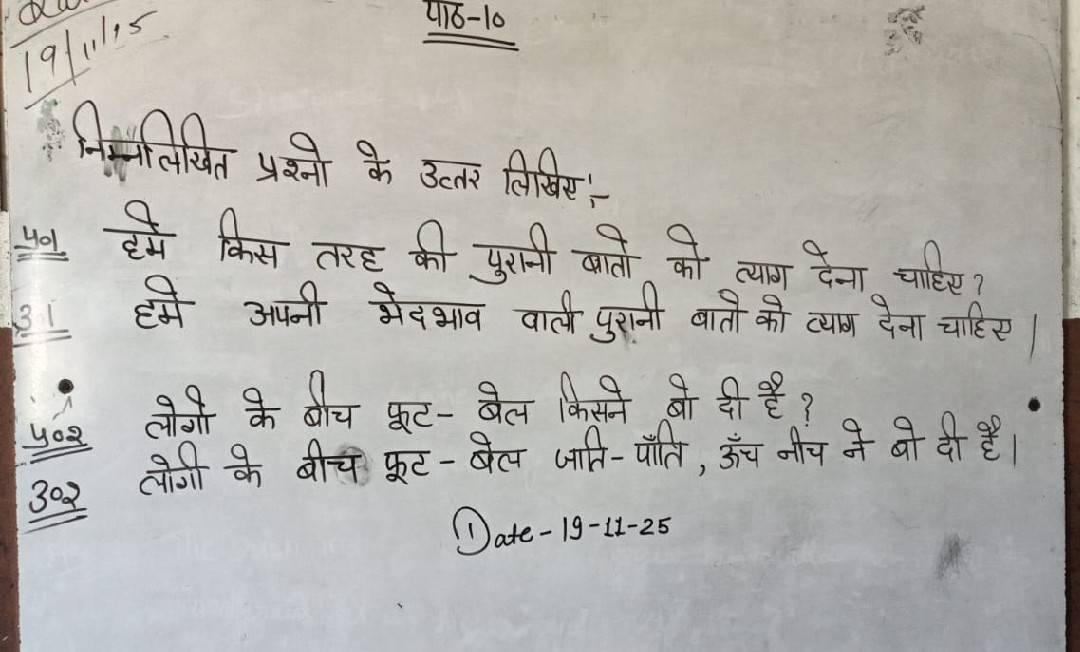 19/11/25
पाठ-10
निम्नलिखित प्रश्नो के उत्तर लिखिए:-
प्र०१ हमे किस तरह की पुरानी बातो को त्याग देना चाहिए?
उ१ हमे अपनी भेदभाव वाली पुरानी बातो को त्याग देना चाहिए।
प्र०२ लोगो के बीच फूट-बेल किसने बो दी है?
उ०२ लोगो के बीच फूट-बेल जाति-पाँति, ऊँच नीच ने बो दी है।
Date-19-11-25